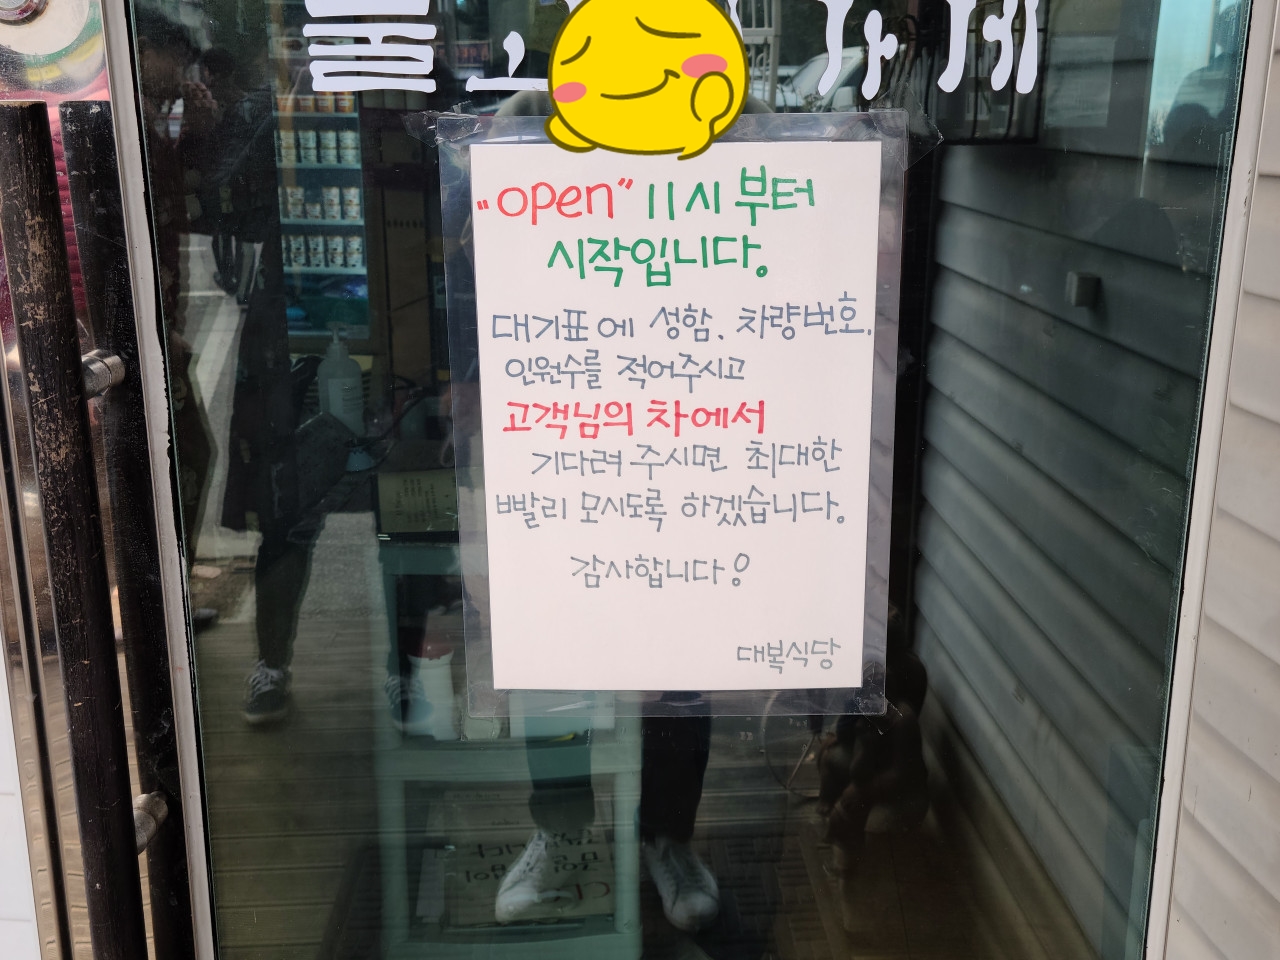 "open" 11시 부터
시작입니다.
대기표에 성함. 차량번호.
인원수를 적어주시고
고객님의 차에서
기다려 주시면 최대한
빨리 모시도록 하겠습니다.
감사합니다!
대복식당